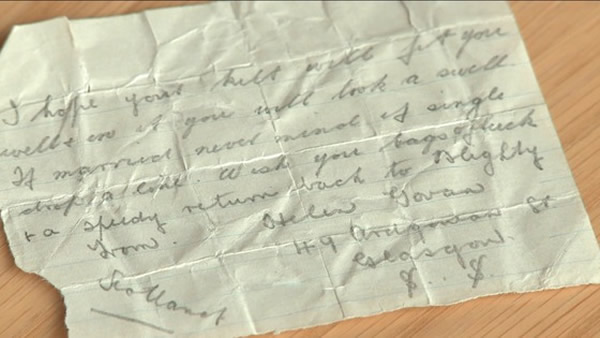 I hope your kilt will fit you
well & in it you will look a swell
If married never mind if single
drop a line. Wish you bags of luck
& a speedy return back to Blighty
From. Helen Govan
49 St.
Glasgow.
Scotland